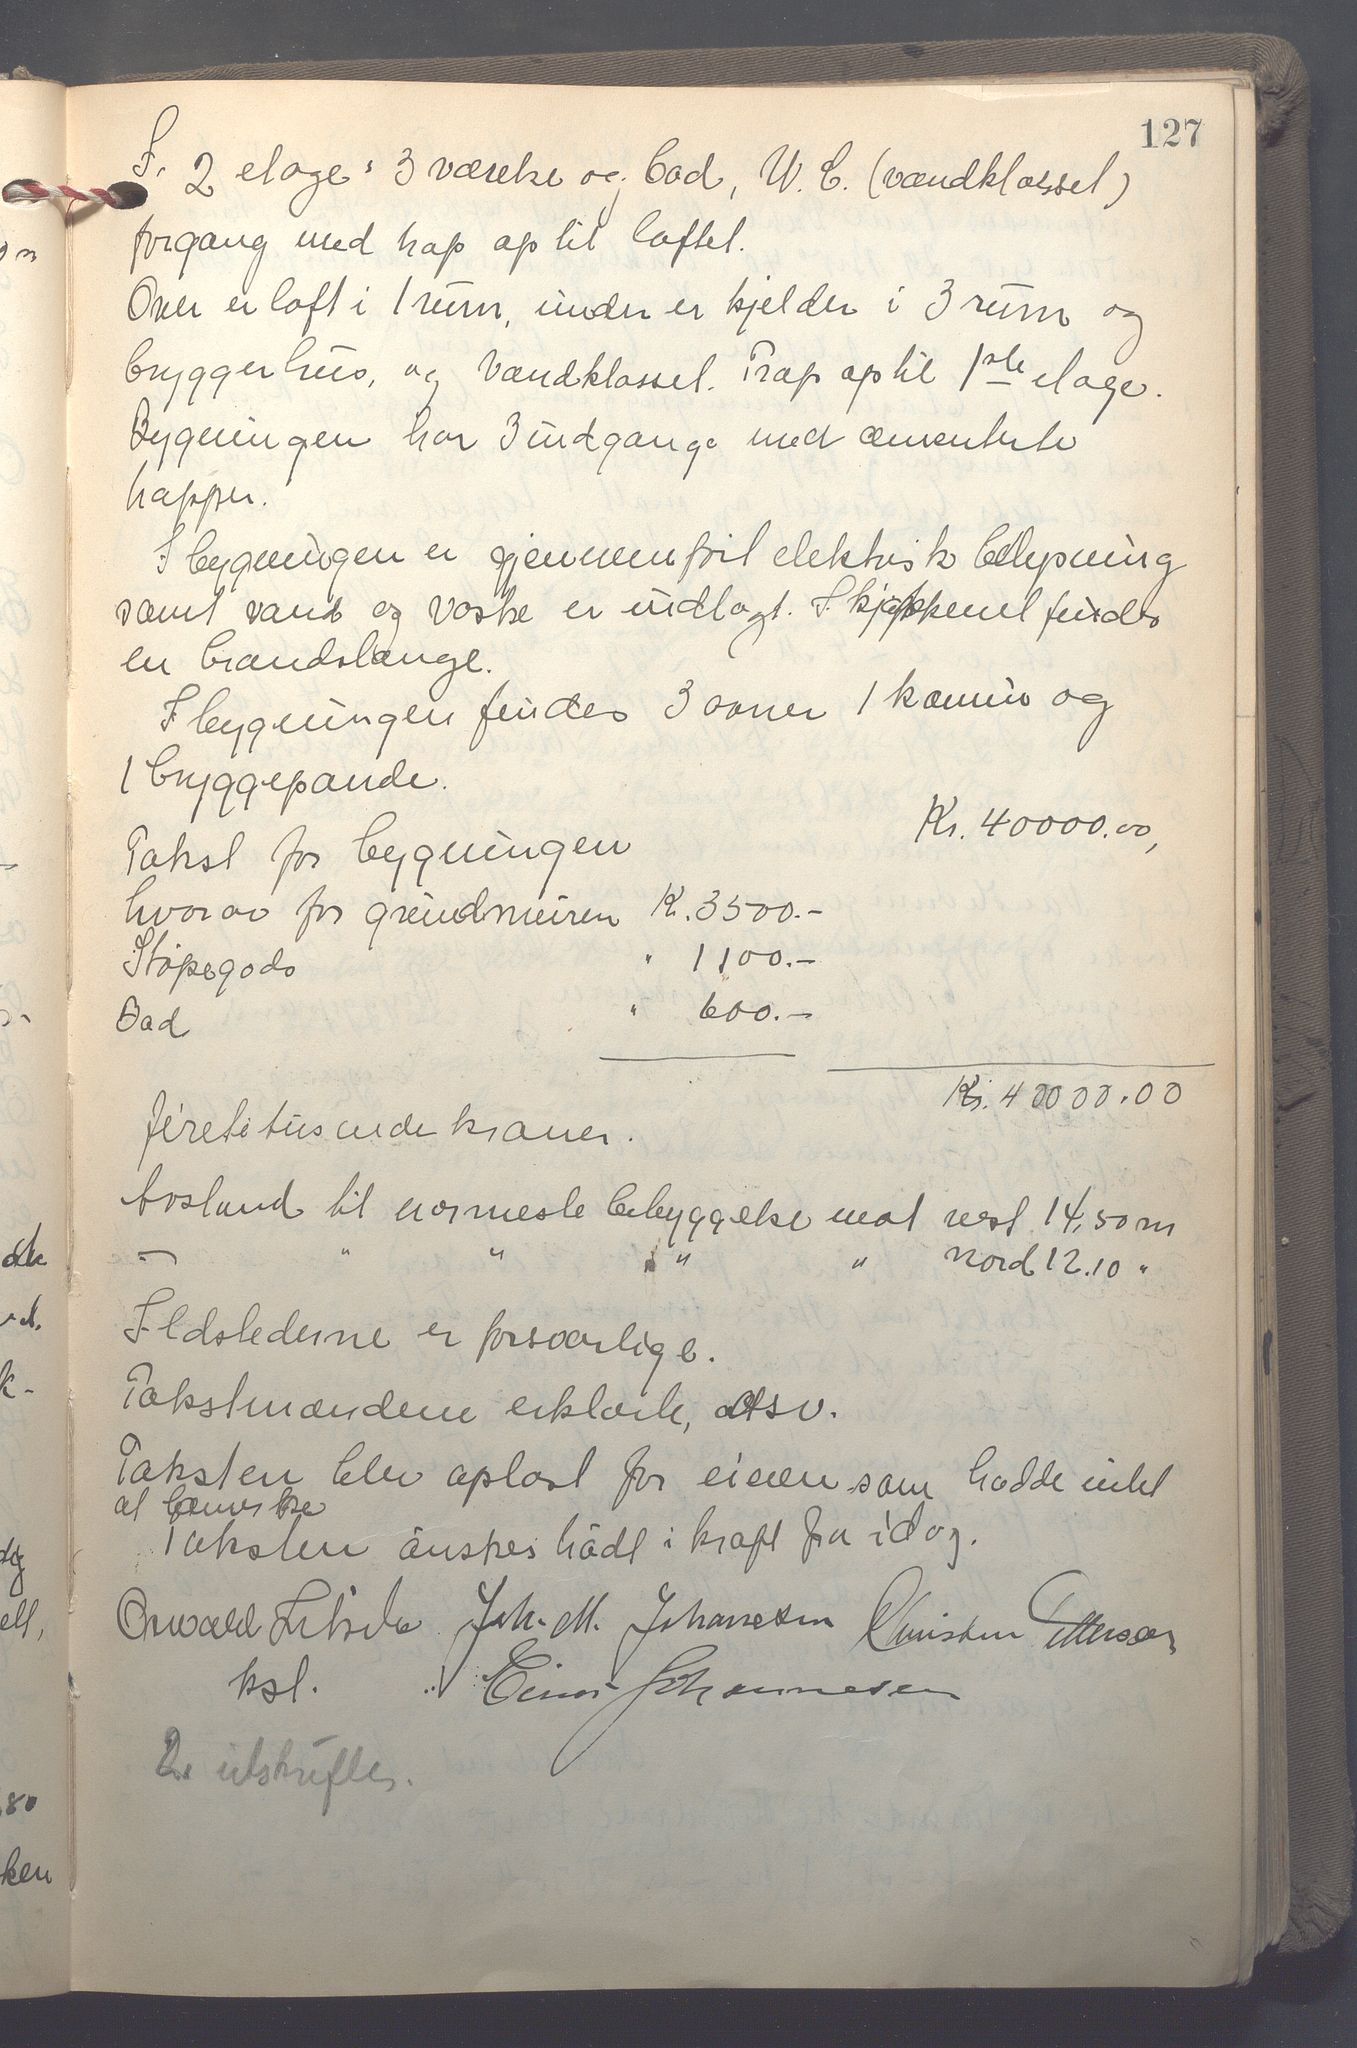 127
I. 2 etage: 3 værelse og bad, W.C. (vandklosset)
forgang med trap op til loftet.
Over er loft i 1 rum, under er kjelder i 3 rum og
bryggerhus, og vandklosset. Trap op til 1ste etage.
Bygningen har 3 indgange med cementerte
trapper.
I bygningen er gjennemført elektrisk belysning
samt vand og vaske er indlagt. I kjøkkenet findes
en brandslange.
I bygningen findes 3 ovner 1 kamin og
1 bryggepande.
Takst for bygningen Kr. 40000.00,
hvorav for grundmuren Kr. 3500.-
Støpegods " 1100.-
Bad " 600.-
Kr. 40000.00
førtitusende kroner.
Avstand til nærmeste bebyggelse mot vest 14,50 m
— " " " " nord 12.10 "
Ildstederne er forsvarlige.
Takstmændene erklærte, osv.
Taksten blev oplæst for eieren som hadde intet
at bemerke
Taksten ønskes trådt i kraft fra idag.
Joh. M. Johannesen Christen Pettersen
kst. Einar Johannesen
2 utskrifter.
ken
80